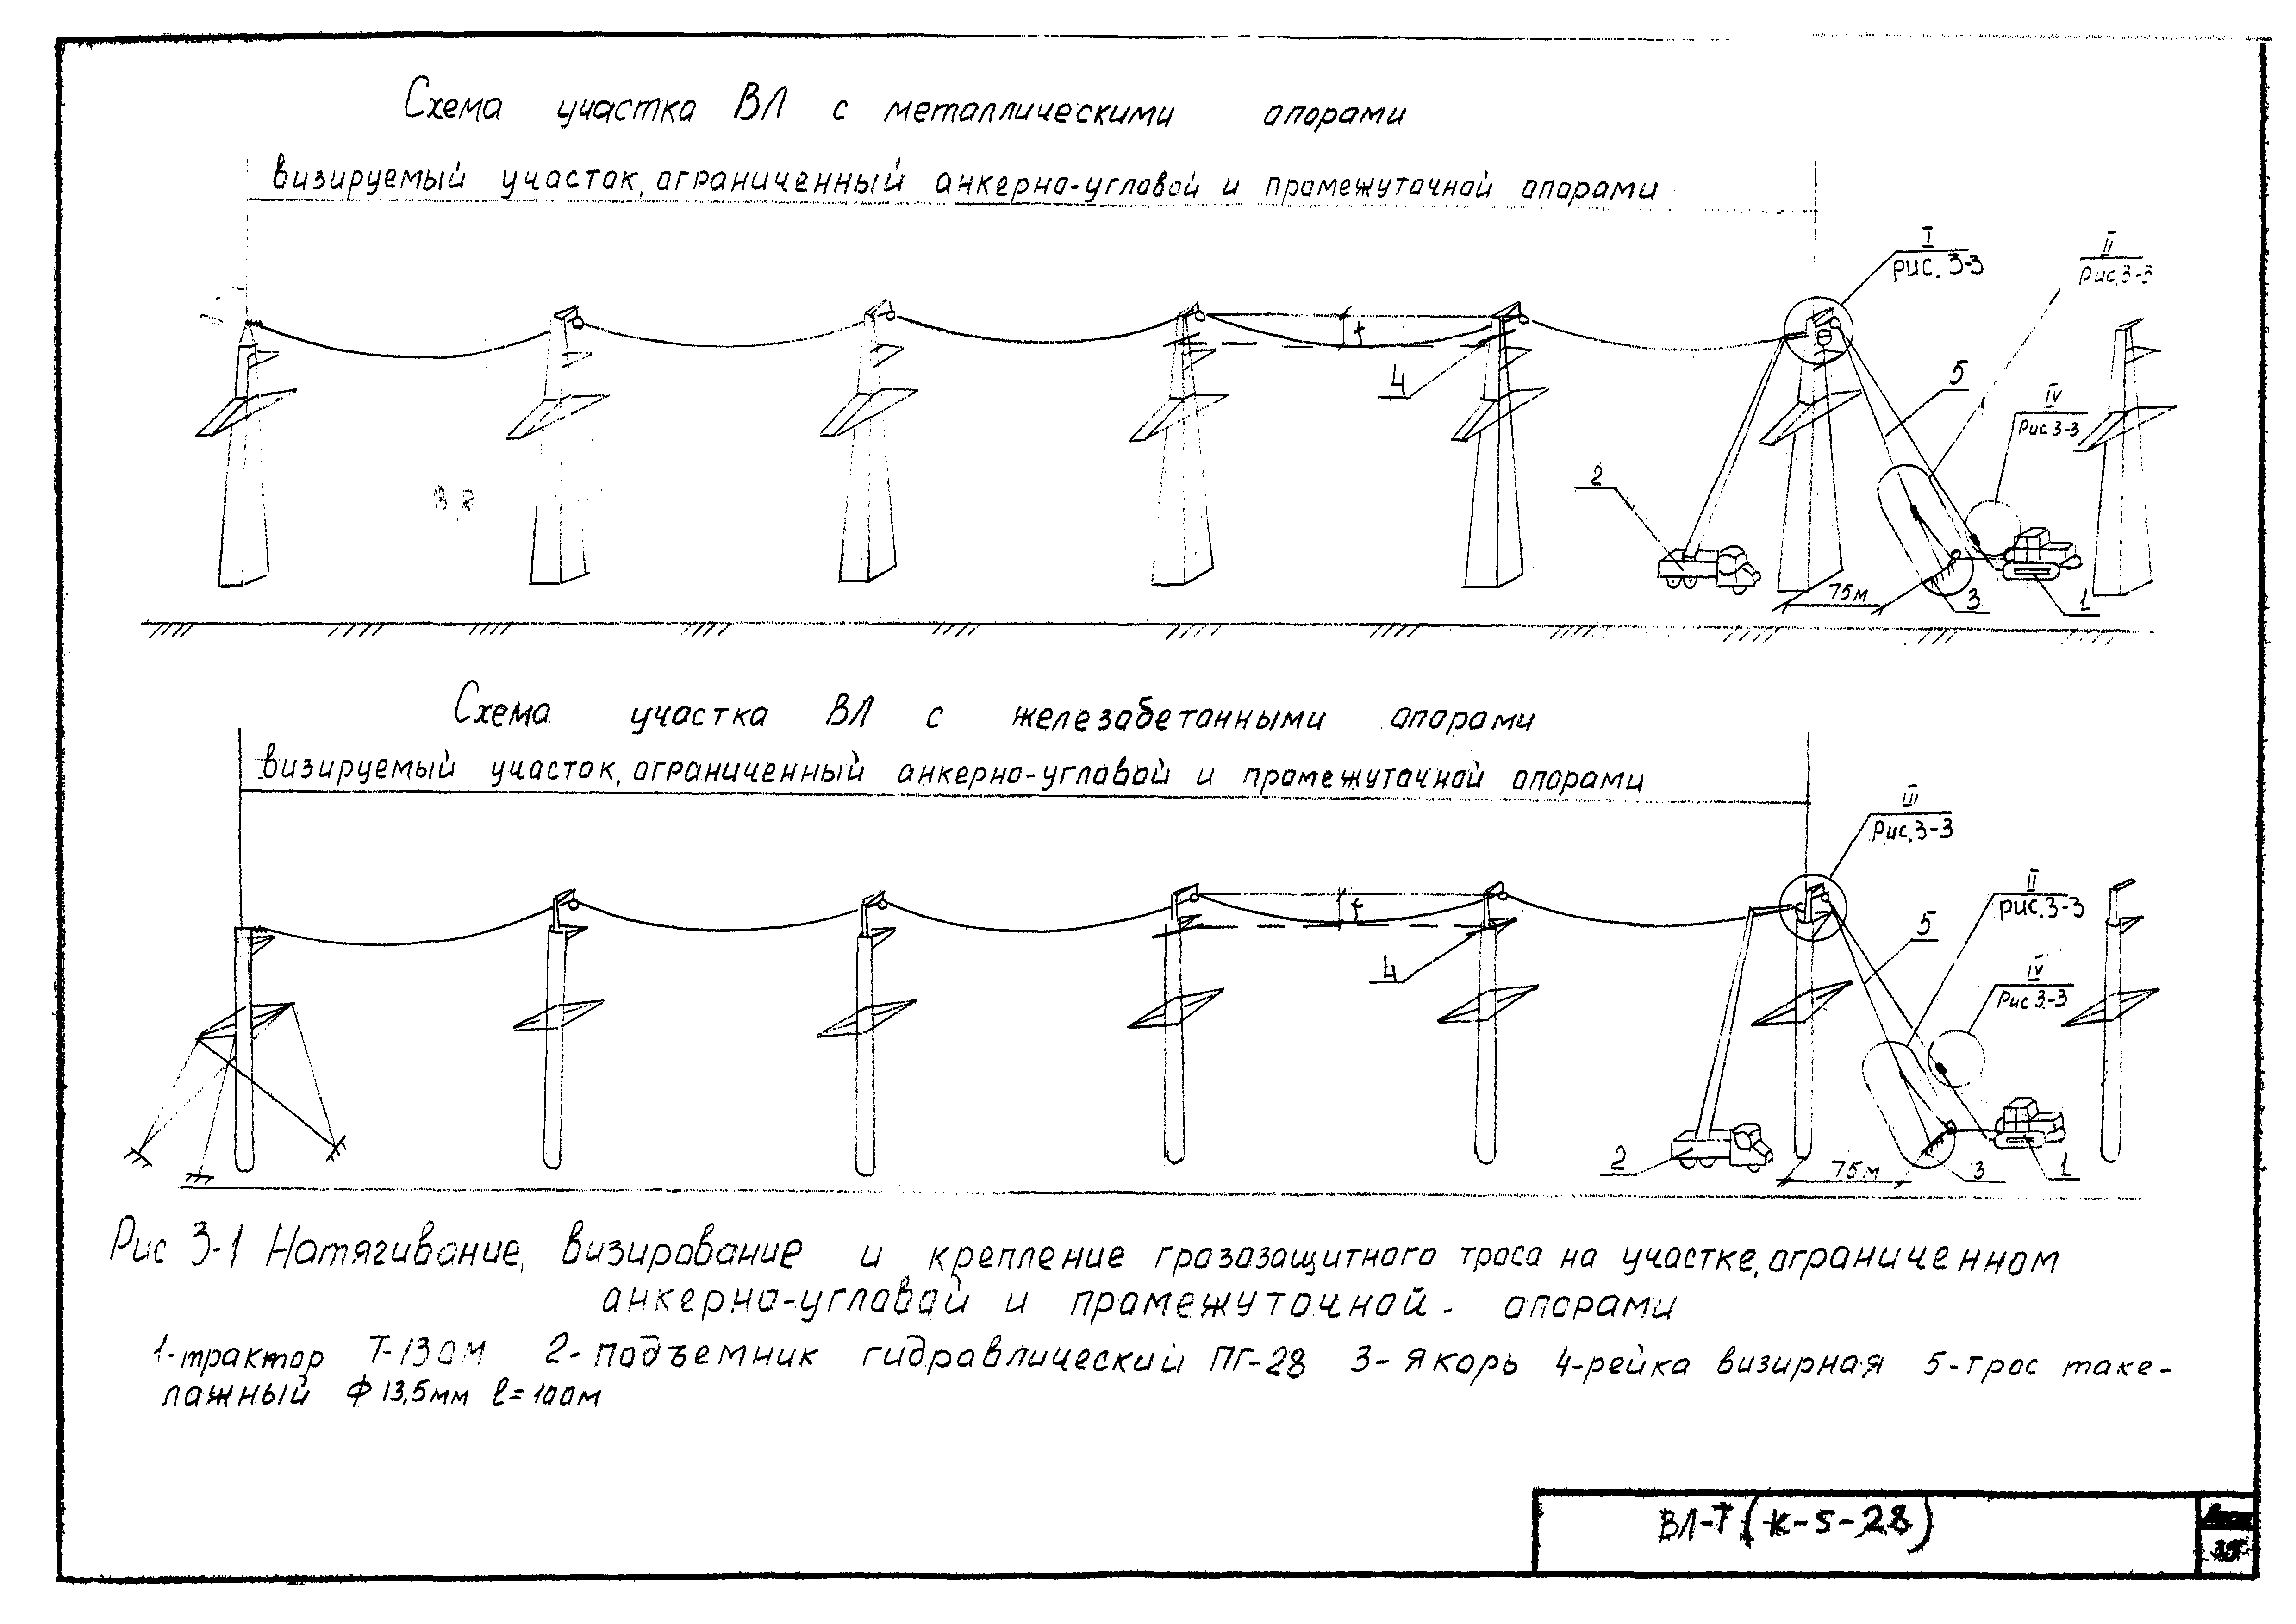 Схема участка ВЛ с металлическими опорами
визируемый участок, ограниченный анкерно-угловой и промежуточной опорами
I
Рис. 3-3
II
Рис. 3-3
f
4
5
IV
Рис 3-3
2
75м
3
1
Схема участка ВЛ с железабетонными опорами
визируемый участок, ограниченный анкерно-угловой и промежуточной опорами
III
Рис. 3-3
II
Рис. 3-3
f
4
5
IV
Рис 3-3
2
75м
3
1
Рис 3-1 Натягивание, визирование и крепление грозозащитного троса на участке, ограниченном
анкерно-угловой и промежуточной - опорами
1-трактор Т-130м 2-подъемник гидравлический ПГ-28 3-якорь 4-рейка визирная 5-трос таке-
лажный ф 13,5мм l=100м
ВЛ-Т (К-5-28)